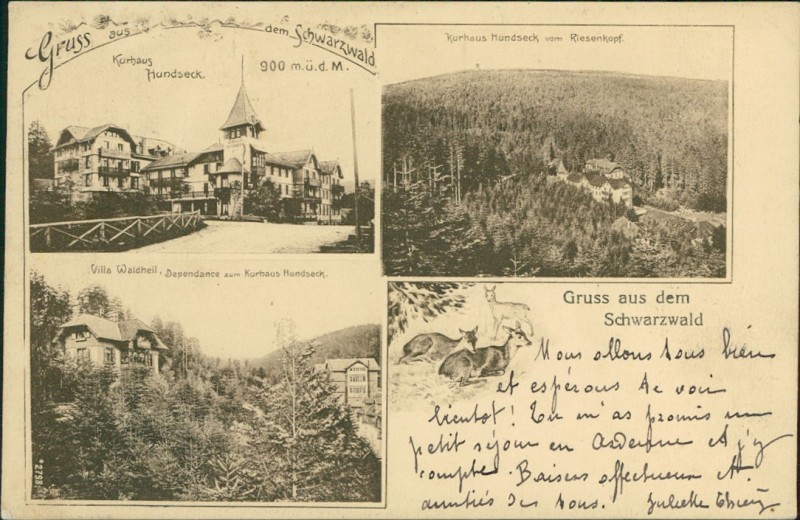 Gruss aus dem Schwarzwald
Kurhaus
Hundseck.
900 m.ü.d.M.
Kurhaus Hundseck vom Riesenkopf.
Villa Waldheil, Dependance zum Kurhaus Hundseck.
*2798
Gruss aus dem
Schwarzwald
Nous allons tous bien
et espérons te voir
bientot! Tu m'as promis un
petit séjour en Ardenne et j'y
compte. Baisers affectueux et
amitiés de tous. Juliette